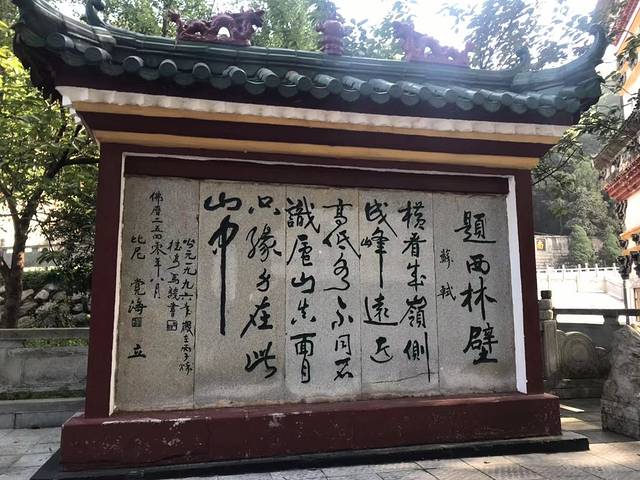 題西林壁
蘇軾
橫看成嶺側
成峰遠近
高低各不同不
識廬山真面目
只緣身在此
山中
公元一九九六年歲在丙子
佛曆二五四零年八月
比尼 覺海 立